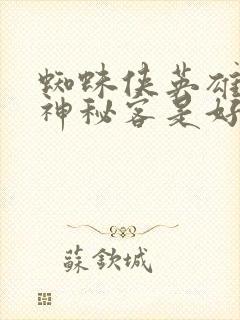 蜘蛛侠英雄
神秘客是好
蘇欽城